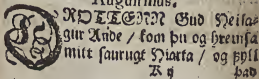 Augustinus.
DROTTENN Gud Heila-
gur Ande / kom þu og hreinsa
mitt saurugt Hiarta / og fyll
K ij þad